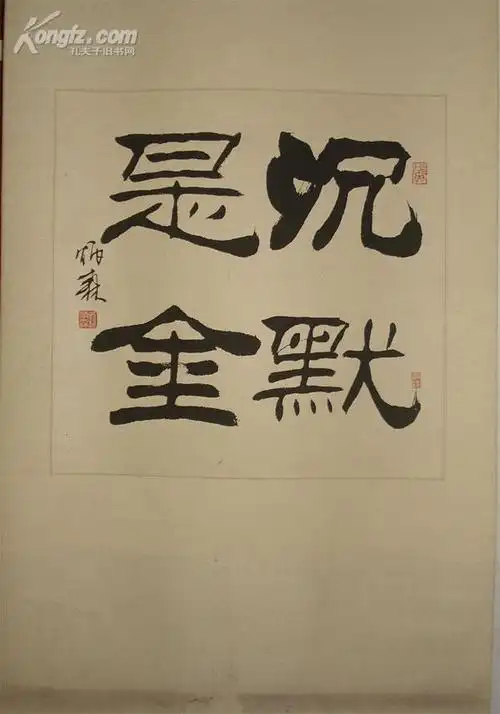 Kongfz.com
孔夫子旧书网
沉默
是金
炳森